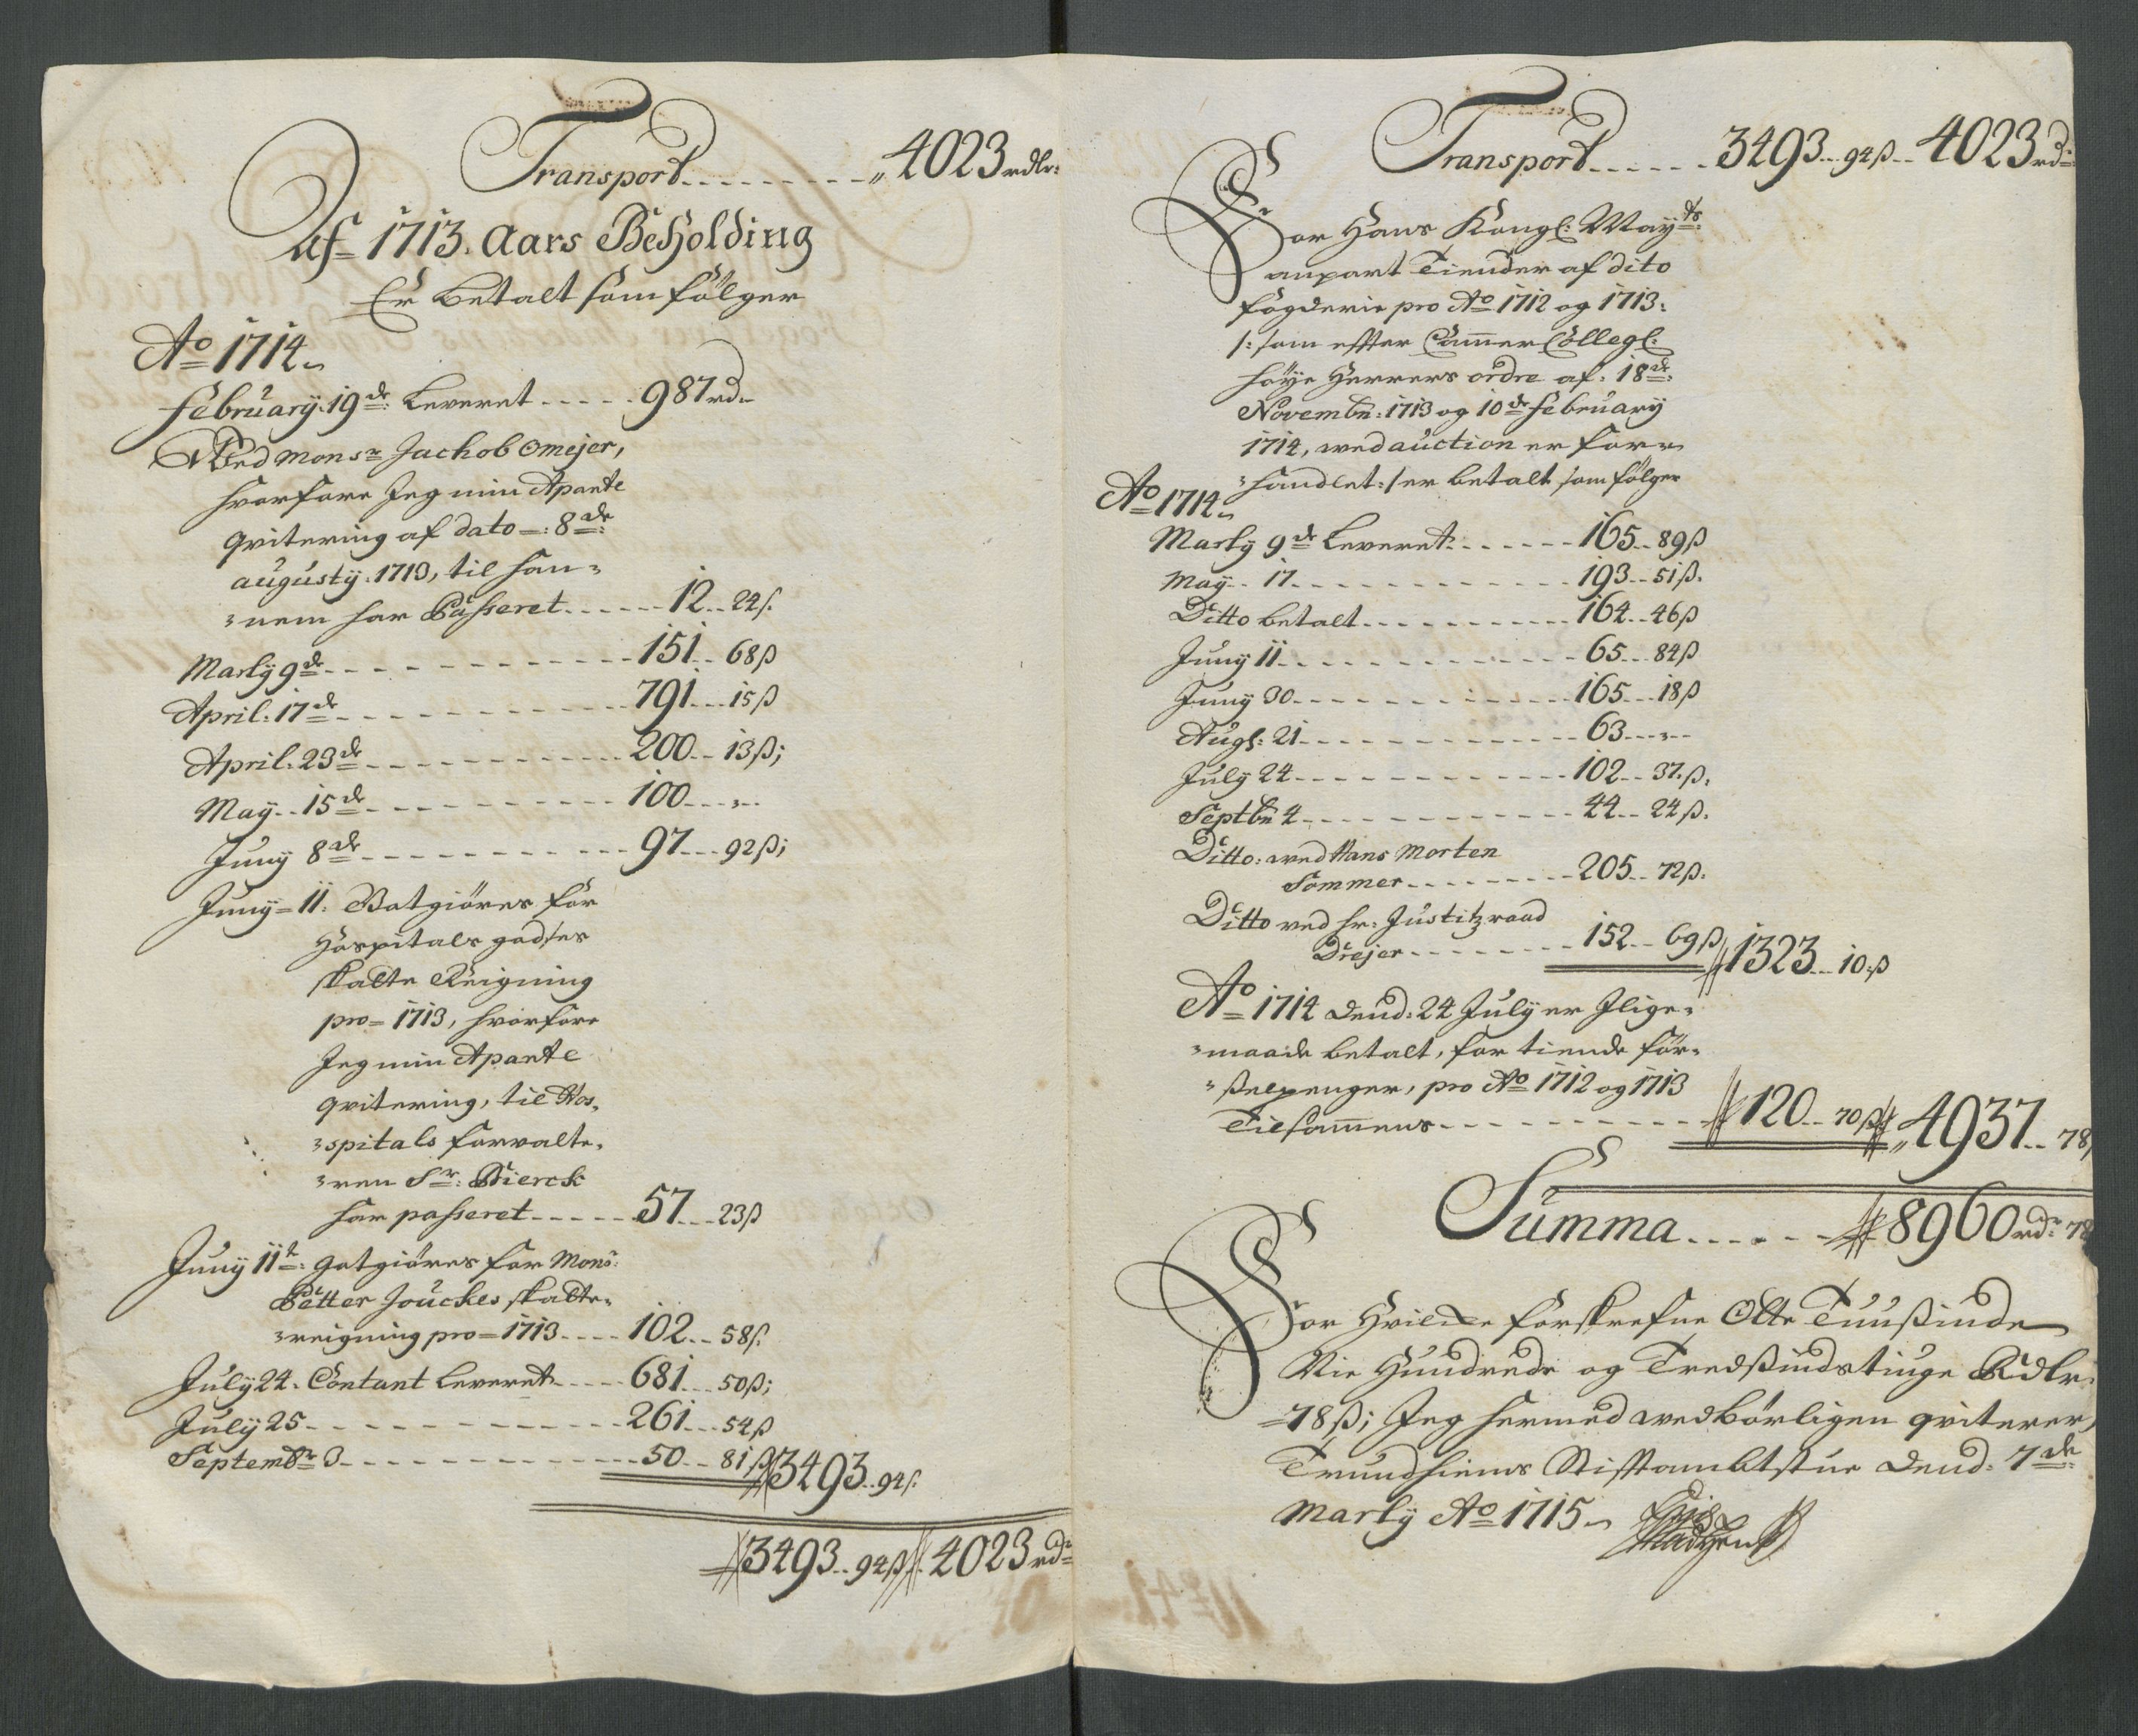 Transport - - - - - - - - - „ 4023 rdlr:
Af 1713. Aars Beholding
Er betalt som følger
Ao 1714 „
February: 19de: Leveret - - - - - 987 rd„
Ved Monsr Jachob Omejer,
hvorfore Jeg min Aparte
qvitering af dato =: 8de:
augusty: 1713, til han=
=nem har Passeret - - - - - - 12 - - 24 s.
Marty 9de - - - - - - - - - - - - 151 - - 68 ß
April: 17de - - - - - - - - - - - 791 - - - 15 ß
April: 23de - - - - - - - - - - - 200 - - 13 ß;
May - - 15de - - - - - - - - - - 100 - - - „ - -
Juny 8de - - - - - - - - - - - 97 - - - 92 ß;
Juny = 11: Gatgiöres for
Hospitals godses
skatte Reigning
pro = 1713, hvorfore
Jeg min Aparte
qvitering, til Hos=
=spitals forvalte=
=ren Sr: Bierck
har passeret - - - - - 57 - - - 23 ß
Juny 11te: gotgiöres for Mons:
Petter Jouckes skatte=
=reigning pro = 1713 - - - - 102 - - 58 s.
July 24. Contant Leveret - - - - 681 - - - 50 ß;
July 25 - - - - - - - - - - - - 261 - - - 54 ß
Septembr 3 - - - - - - - - - - - 50 - - 81 ß 3493 - - 94 s.
3493 - - 94 ß 4023 rdr
Transport - - - - - 3493 - - 94 ß - - 4023 rd:
For Hans Kongl: Mayts:
anpart Tiender af dito
fögderie pro Ao 1712 og 1713:
/: som effter Cammer Collegl:
høye Herrers ordre af: 18de:
Novembr: 1713 og 10de february
1714, wed auction er for=
=handlet :/ er betalt som følger
Ao 1714 „
Marty 9de Leveret - - - - - - - 165 - - 89 ß
May - - 17 - - - - - - - - - - - - 193 - - 51 ß.
Ditto betalt - - - - - - - - - - - 164 - - 46 ß
Juny 11 - - - - - - - - - - - - 65 - - - 84 ß
Juny 30 - - - - - - - - - - - - 165 - - - 18 ß
Augs: 21 - - - - - - - - - - - - 63 - - - „ - -
July 24 - - - - - - - - - - - - 102 - - 37. ß.
Septbr 4 - - - - - - - - - - - - 44 - - 24 ß.
Ditto: wed Hans Morten
Sommer - - - - - - - - - 205 - - 72 ß.
Ditto ved hr: Justitzraad
Drejer - - - - - - - - 152 - - 69 ß 1323 - - 10 ß
Ao 1714 dend: 24 July er Jlige=
=maade betalt, for tiendeför=
=selpenger, pro Ao 1712 og 1713
Tilsammens - - - - - - - - - - - 120 - - 70 ß „ 4937 - - 78
Summa - - - - - - 8960 rdr 78
For Hvilcke forskrefne Otte Tuusinde
Nie Hundrede og Tredsindstiuge Rdlr.
=78 ß; Jeg hermed wedbörligen qviterer,
Trundhiems Stiftambtstue dend: 7de
Marty Ao 1715 „